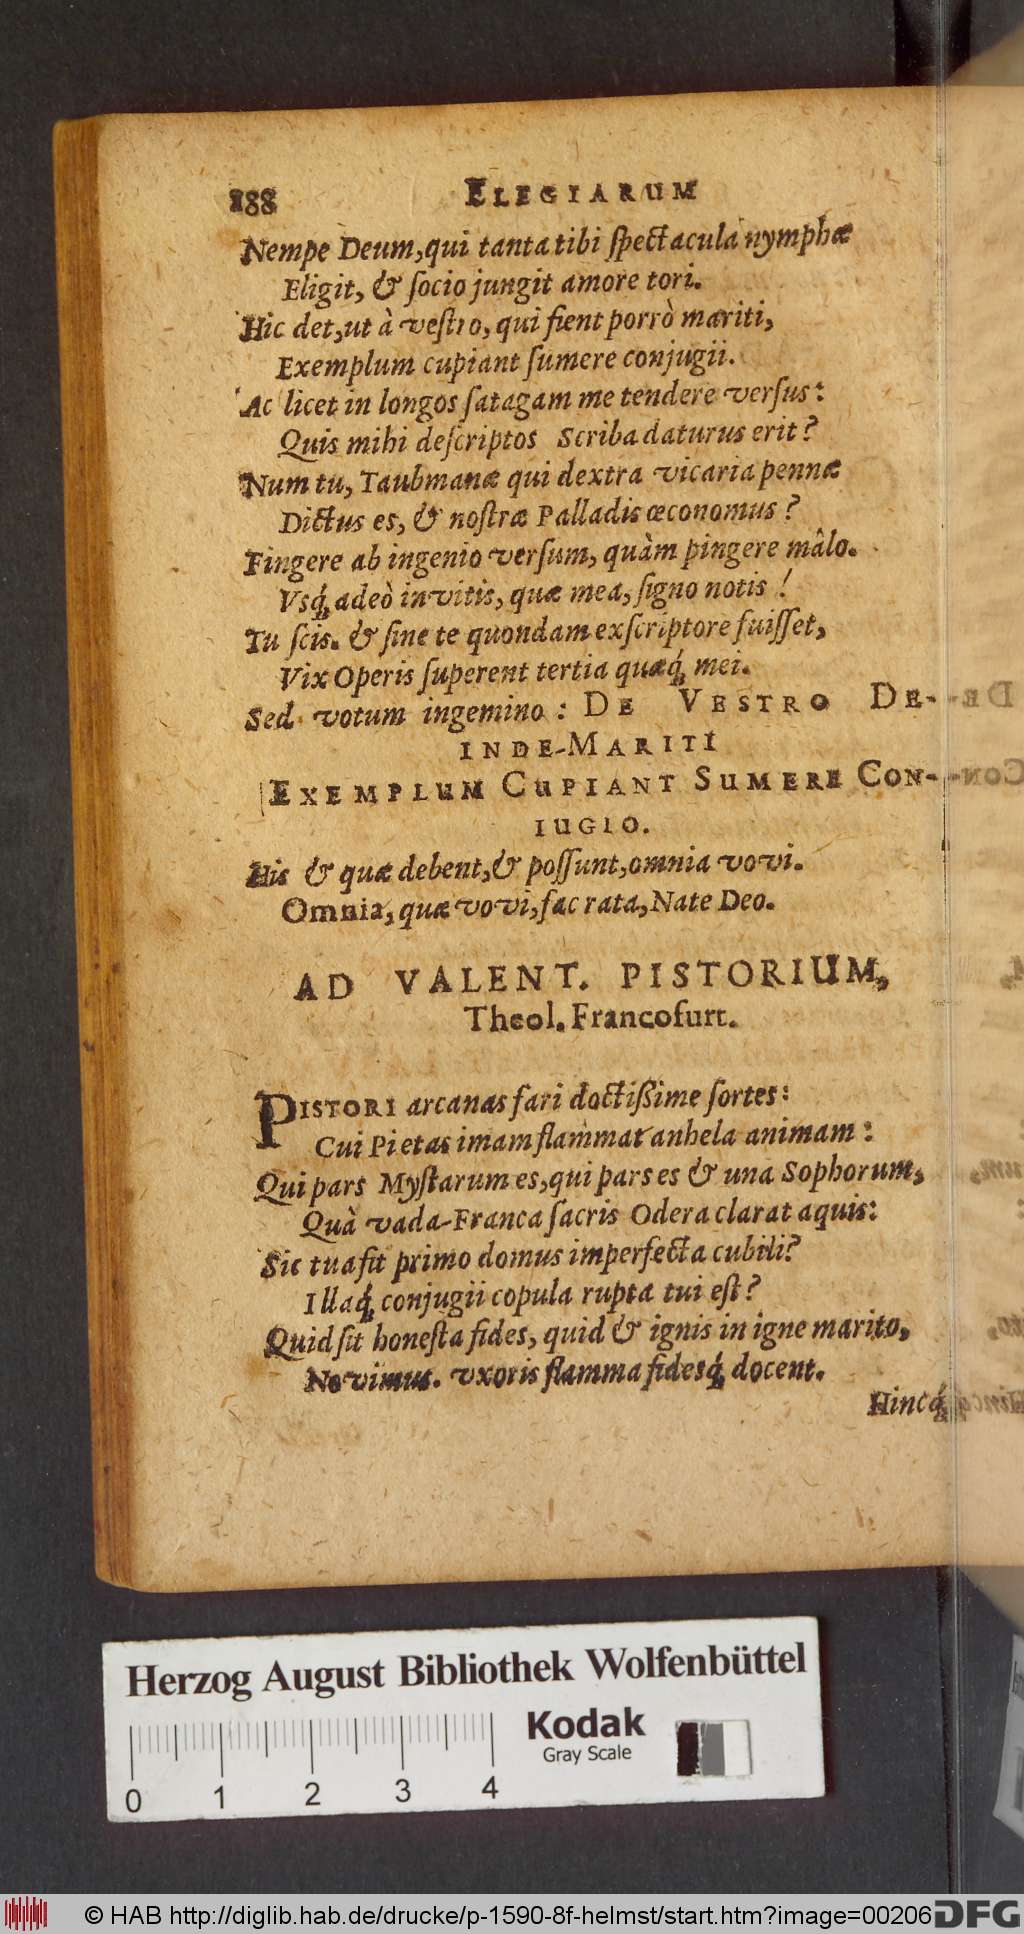 188 ELEGIARUM
Nempe Deum, qui tanta tibi ſpectacula nymphæ
Eligit, & ſocio jungit amore tori.
Hic det, ut à veſtro, qui fient porrò mariti,
Exemplum cupiant ſumere conjugii.
Ac licet in longos ſatagam me tendere verſus:
Quis mihi deſcriptos Scriba daturus erit?
Num tu, Taubmanæ qui dextra vicaria pennæ
Dictus es, & noſtræ Palladis œconomus?
Fingere ab ingenio verſum, quàm pingere mâlo.
Vsq́; adeò invitis, quæ mea, ſigno notis!
Tu ſcis. & ſine te quondam exſcriptore fuiſſet,
Vix Operis ſuperent tertia quæq́; mei.
Sed votum ingemino: DE VESTRO DE-
INDE-MARITI
EXEMPLUM CUPIANT SUMERE CON-
IUGIO.
His & quæ debent, & poſſunt, omnia vovi.
Omnia, quæ vovi, fac rata, Nate Deo.
AD VALENT. PISTORIUM,
Theol. Francofurt.
PISTORI arcanas fari doctißime ſortes:
Cui Pietas imam flammat anhela animam:
Qui pars Myſtarum es, qui pars es & una Sophorum,
Quà vada-Franca ſacris Odera clarat aquis:
Sic tua ſit primo domus imperfecta cubili?
Illaq́; conjugii copula rupta tui eſt?
Quid ſit honeſta fides, quid & ignis in igne marito,
Novimus. vxoris flamma fidesq́; docent.
Hincq́;
Herzog August Bibliothek Wolfenbüttel
Kodak
Gray Scale
0 1 2 3 4
© HAB http://diglib.hab.de/drucke/p-1590-8f-helmst/start.htm?image=00206 DFG